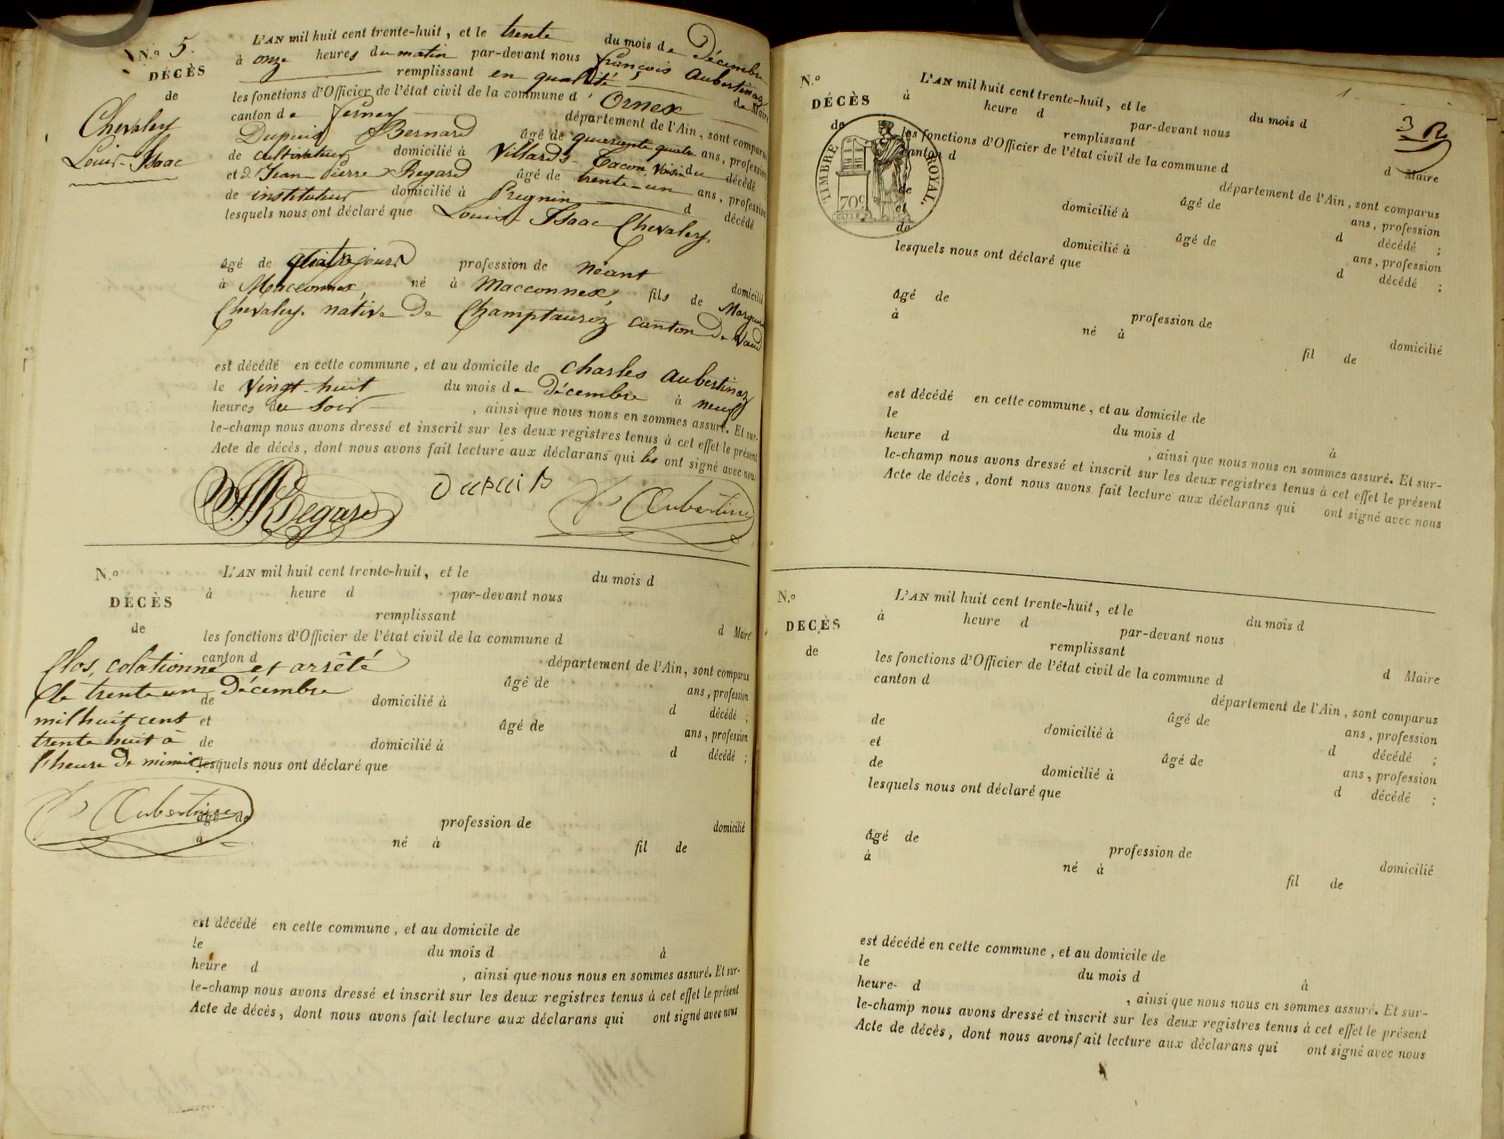 N.º 5.
DÉCÈS
de
Chevaley
Louis-Isaac
L'AN mil huit cent trente-huit, et le trente du mois de Décembre
à onze heures du matin par-devant nous françois Aubertinaz
remplissant en qualité de Maire
les fonctions d'Officier de l'état civil de la commune d'Ornex
canton de Ferney département de l'Ain, sont comparus
Dupuis Bernard âgé de quarante quatre ans, profession
de cultivateur domicilié à Villards-Tacon, Voisin du décédé
et d Jean-Pierre Regard âgé de trente-un ans, profession
de instituteur domicilié à Pregnin d décédé
lesquels nous ont déclaré que Louis Isaac Chevaley.
âgé de quatre jours profession de néant domicilié
à Macconnex, né à Macconnex, fils de
Chevaley. native de Champtauroz canton de Vaud
est décédé en cette commune, et au domicile de charles Aubertinaz
le Vingt-huit du mois de Décembre à neuf
heures du Soir, ainsi que nous nous en sommes assuré. Et sur-
le-champ nous avons dressé et inscrit sur les deux registres tenus à cet effet le présent
Acte de décès, dont nous avons fait lecture aux déclarans qui les ont signé avec nous
Regard Dupuis Aubertin
N.º
DÉCÈS
de
L'AN mil huit cent trente-huit, et le du mois d
à heure d par-devant nous
remplissant d Maire
les fonctions d'Officier de l'état civil de la commune d
canton d département de l'Ain, sont comparus
âgé de ans, profession
de domicilié à d décédé ;
et âgé de ans, profession
de domicilié à d décédé ;
lesquels nous ont déclaré que
Clos, colationné et arrêté
le trente un Décembre
mil huit cent
trente huit à
l'heure de minuit
Aubertin
âgé de profession de domicilié
à né à fil de
est décédé en cette commune, et au domicile de
le du mois d à
heure d , ainsi que nous nous en sommes assuré. Et sur-
le-champ nous avons dressé et inscrit sur les deux registres tenus à cet effet le présent
Acte de décès, dont nous avons fait lecture aux déclarans qui ont signé avec nous
N.º
DÉCÈS
de
TIMBRE ROYAL.
70c
L'AN mil huit cent trente-huit, et le du mois d
à heure d par-devant nous
remplissant d Maire
les fonctions d'Officier de l'état civil de la commune d
canton d département de l'Ain, sont comparus
âgé de ans, profession
de domicilié à d décédé ;
et âgé de ans, profession
de domicilié à d décédé ;
lesquels nous ont déclaré que
âgé de profession de domicilié
à né à fil de
est décédé en cette commune, et au domicile de
le du mois d à
heure d , ainsi que nous nous en sommes assuré. Et sur-
le-champ nous avons dressé et inscrit sur les deux registres tenus à cet effet le présent
Acte de décès, dont nous avons fait lecture aux déclarans qui ont signé avec nous
N.º
DÉCÈS
de
L'AN mil huit cent trente-huit, et le du mois d
à heure d par-devant nous
remplissant d Maire
les fonctions d'Officier de l'état civil de la commune d
canton d département de l'Ain, sont comparus
âgé de ans, profession
de domicilié à d décédé ;
et âgé de ans, profession
de domicilié à d décédé ;
lesquels nous ont déclaré que
âgé de profession de domicilié
à né à fil de
est décédé en cette commune, et au domicile de
le du mois d à
heure d , ainsi que nous nous en sommes assuré. Et sur-
le-champ nous avons dressé et inscrit sur les deux registres tenus à cet effet le présent
Acte de décès, dont nous avons fait lecture aux déclarans qui ont signé avec nous